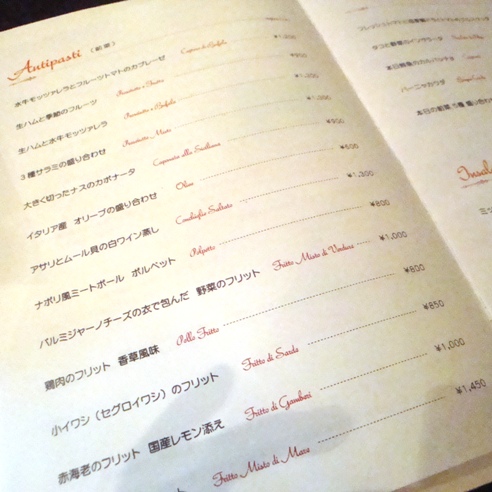 Antipasti (前菜)
水牛モッツァレラとフルーツトマトのカプレーゼ Caprese di Bufala
生ハムと季節のフルーツ Prosciutto e Frutta
生ハムと水牛モッツァレラ Prosciutto e Bufala
3種サラミの盛り合わせ Prosciutto Misto
大きく切ったナスのカポナータ Caponata alla Siciliana ¥800
イタリア産 オリーブの盛り合わせ Olive ¥600
アサリとムール貝の白ワイン蒸し ¥1,300
ナポリ風ミートボール ポルペット Polpette ¥800
パルミジャーノチーズの衣で包んだ 野菜のフリット Fritto Misto di Verdura ¥1,000
鶏肉のフリット 香草風味 Pollo Fritto ¥800
小イワシ(セグロイワシ)のフリット Fritto di Sarde ¥850
赤海老のフリット 国産レモン添え Fritto di Gamberi ¥1,000
Fritto Misto di Mare ¥1,450
タコと野菜のインサラータ
バーニャカウダ